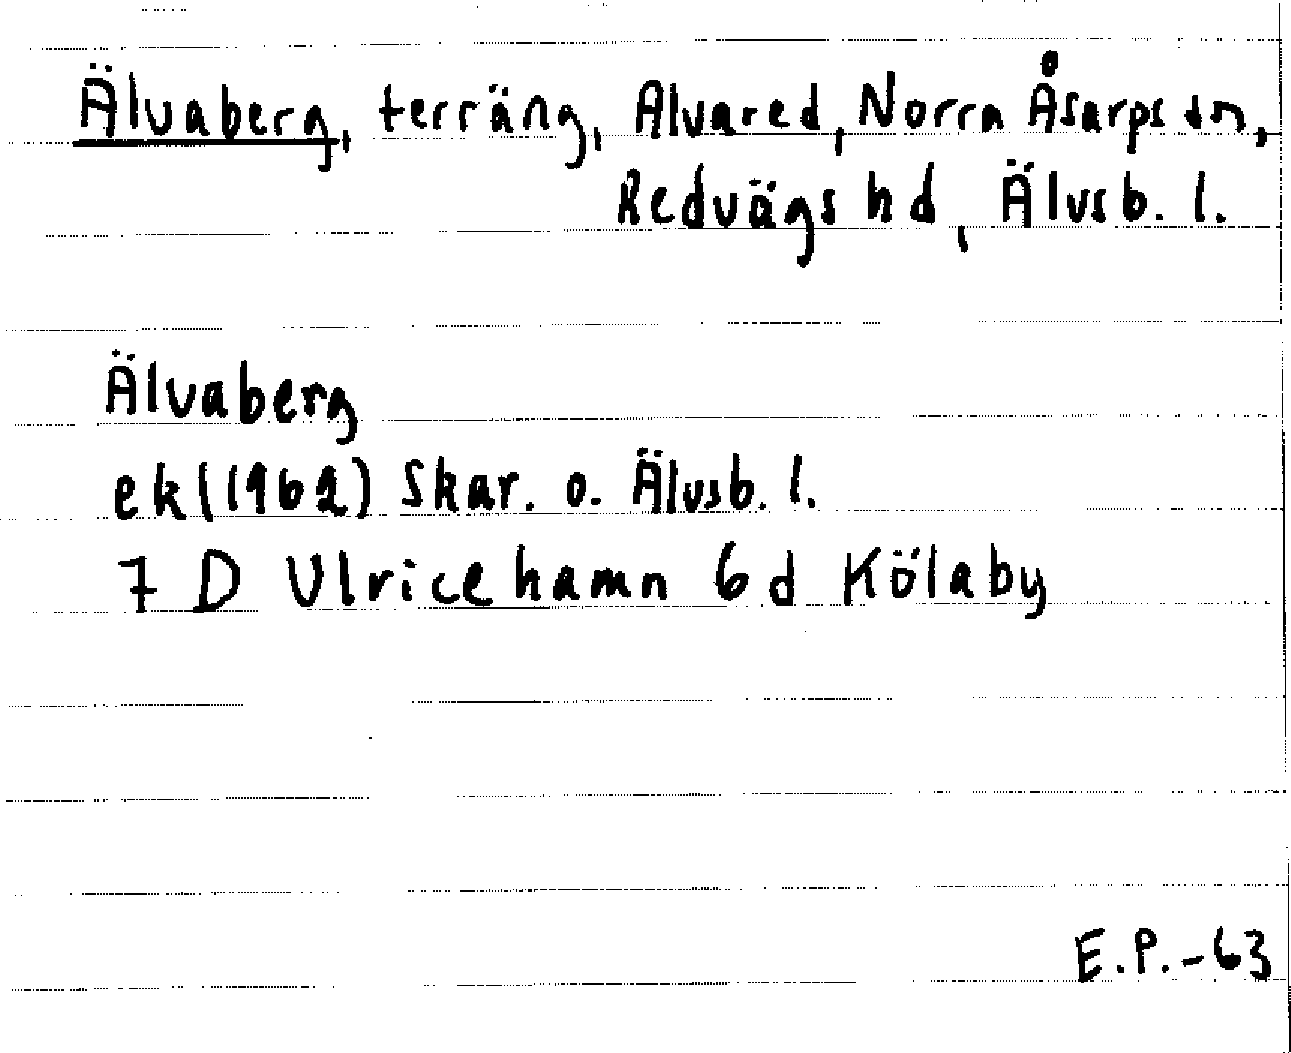 Älvaberg, terräng, Alvared, Norra Åsarps sn,
Redvägs hd, Älvsb. l.
Älvaberg
ek (1962) Skar. o. Älvsb. l.
7 D Ulricehamn 6 d Kölaby
E.P.-63